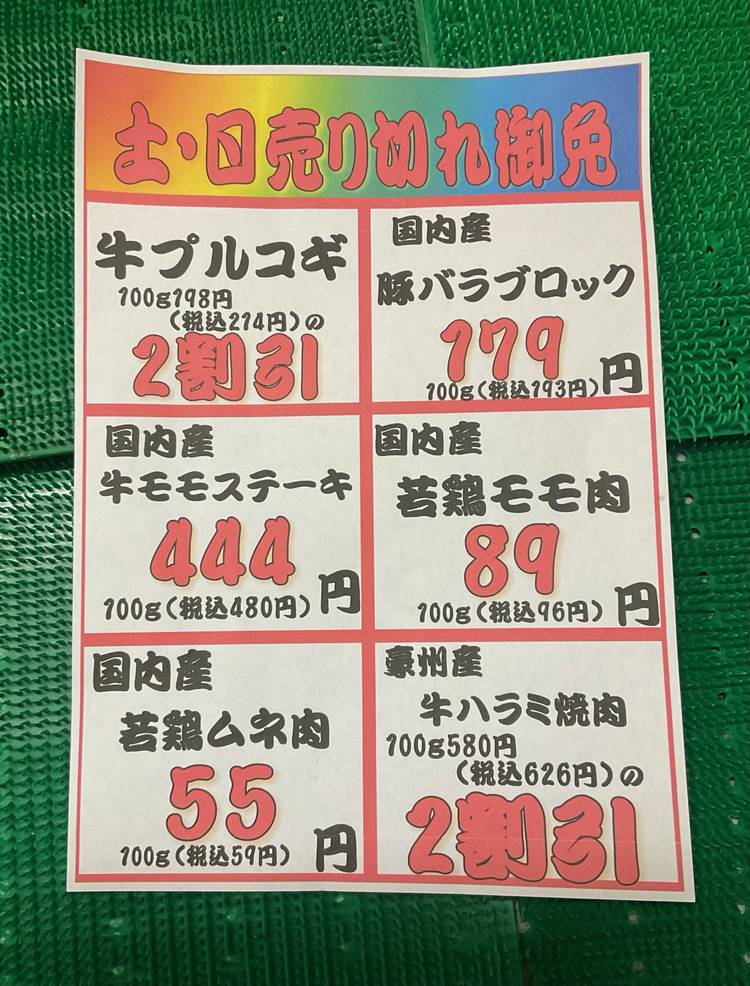 土・日売り切れ御免
牛プルコギ
100g198円
(税込214円)の
2割引
国内産
豚バラブロック
179円
100g(税込193円)
国内産
牛モモステーキ
444円
100g(税込480円)
国内産
若鶏モモ肉
89円
100g(税込96円)
国内産
若鶏ムネ肉
55円
100g(税込59円)
豪州産
牛ハラミ焼肉
100g580円
(税込626円)の
2割引